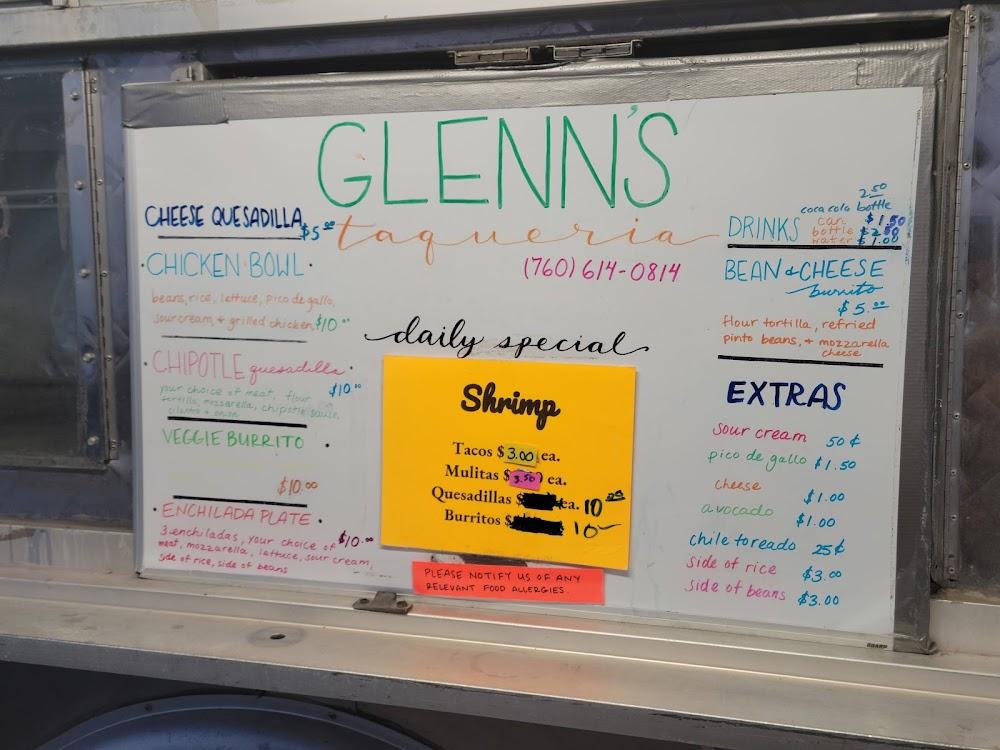 GLENN'S
taqueria
(760) 614-0814
CHEESE QUESADILLA $5.00
CHICKEN BOWL
beans, rice, lettuce, pico de gallo,
sour cream, + grilled chicken $10.00
CHIPOTLE quesadilla
your choice of meat, flour $10.00
tortilla, mozzarella, chipotle sauce,
cilantro + onion
VEGGIE BURRITO
$10.00
ENCHILADA PLATE
3 enchiladas, your choice of $10.00
meat, mozzarella, lettuce, sour cream,
side of rice, side of beans
daily special
Shrimp
Tacos $3.00 ea.
Mulitas $3.50 ea.
Quesadillas $ ea. 10.00
Burritos $ 10
PLEASE NOTIFY US OF ANY
RELEVANT FOOD ALLERGIES.
2.50
coca cola bottle
DRINKS can $1.50
bottle $2.50
water $1.00
BEAN & CHEESE
burrito
$5.00
flour tortilla, refried
pinto beans, + mozzarella
cheese
EXTRAS
sour cream 50¢
pico de gallo $1.50
cheese $1.00
avocado $1.00
chile toreado 25¢
side of rice $3.00
side of beans $3.00